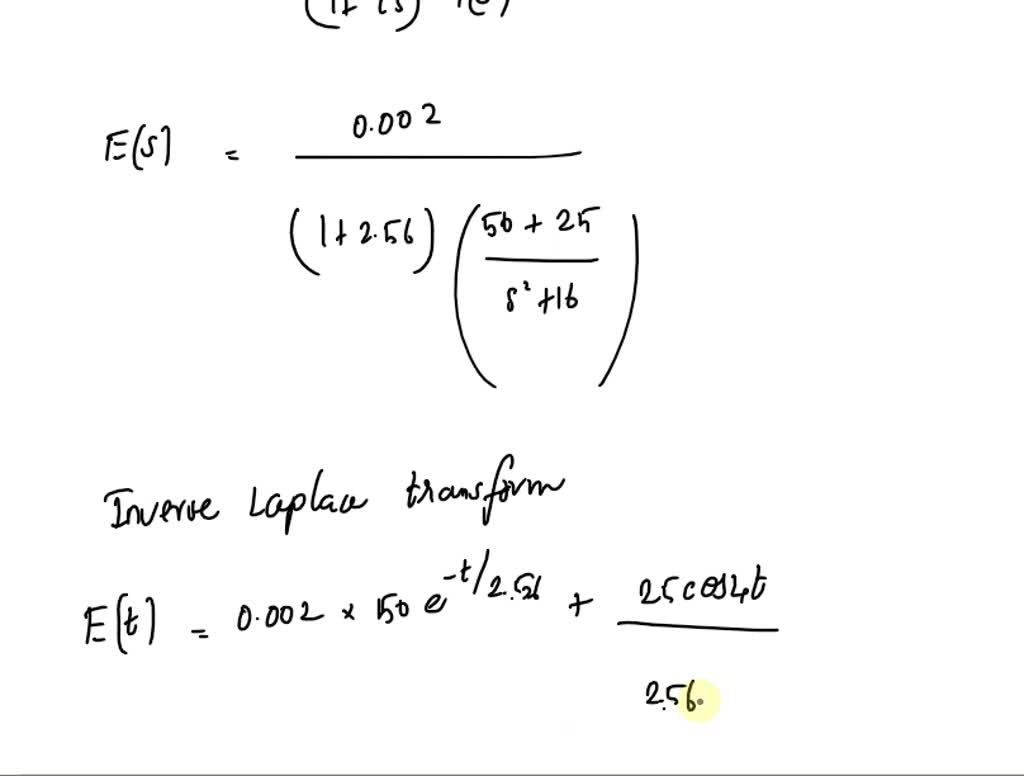 E(s) = 0.002 / (1+2.56) (50 + 25 / s²+16)
Inverse Laplace transform
E(t) = 0.002 × 50 e^{-t/2.56} + 25cos4t / 2.56